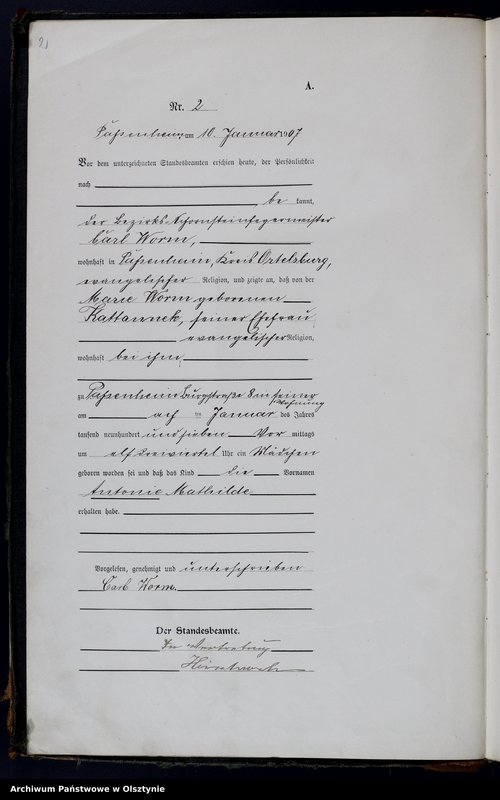 21
A.
Nr. 2
Passenheim, am 10. Januar 1907
Vor dem unterzeichneten Standesbeamten erschien heute, der Persönlichkeit
nach
be kannt,
der Bezirks-Schornsteinfegermeister
Carl Worm,
wohnhaft in Passenheim, Kreis Ortelsburg,
evangelischer Religion, und zeigte an, daß von der
Marie Worm geborenen
Kattannek, seiner Ehefrau,
evangelischer Religion,
wohnhaft bei ihm,
zu Passenheim Burgstraße 8 in seiner
Wohnung
am acht ten Januar des Jahres
tausend neunhundert und sieben Vor mittags
um elf dreiviertel Uhr ein Mädchen
geboren worden sei und daß das Kind die Vornamen
Antonie Mathilde
erhalten habe.
Vorgelesen, genehmigt und unterschrieben
Carl Worm.
Der Standesbeamte.
In Vertretung
Archiwum Państwowe w Olsztynie